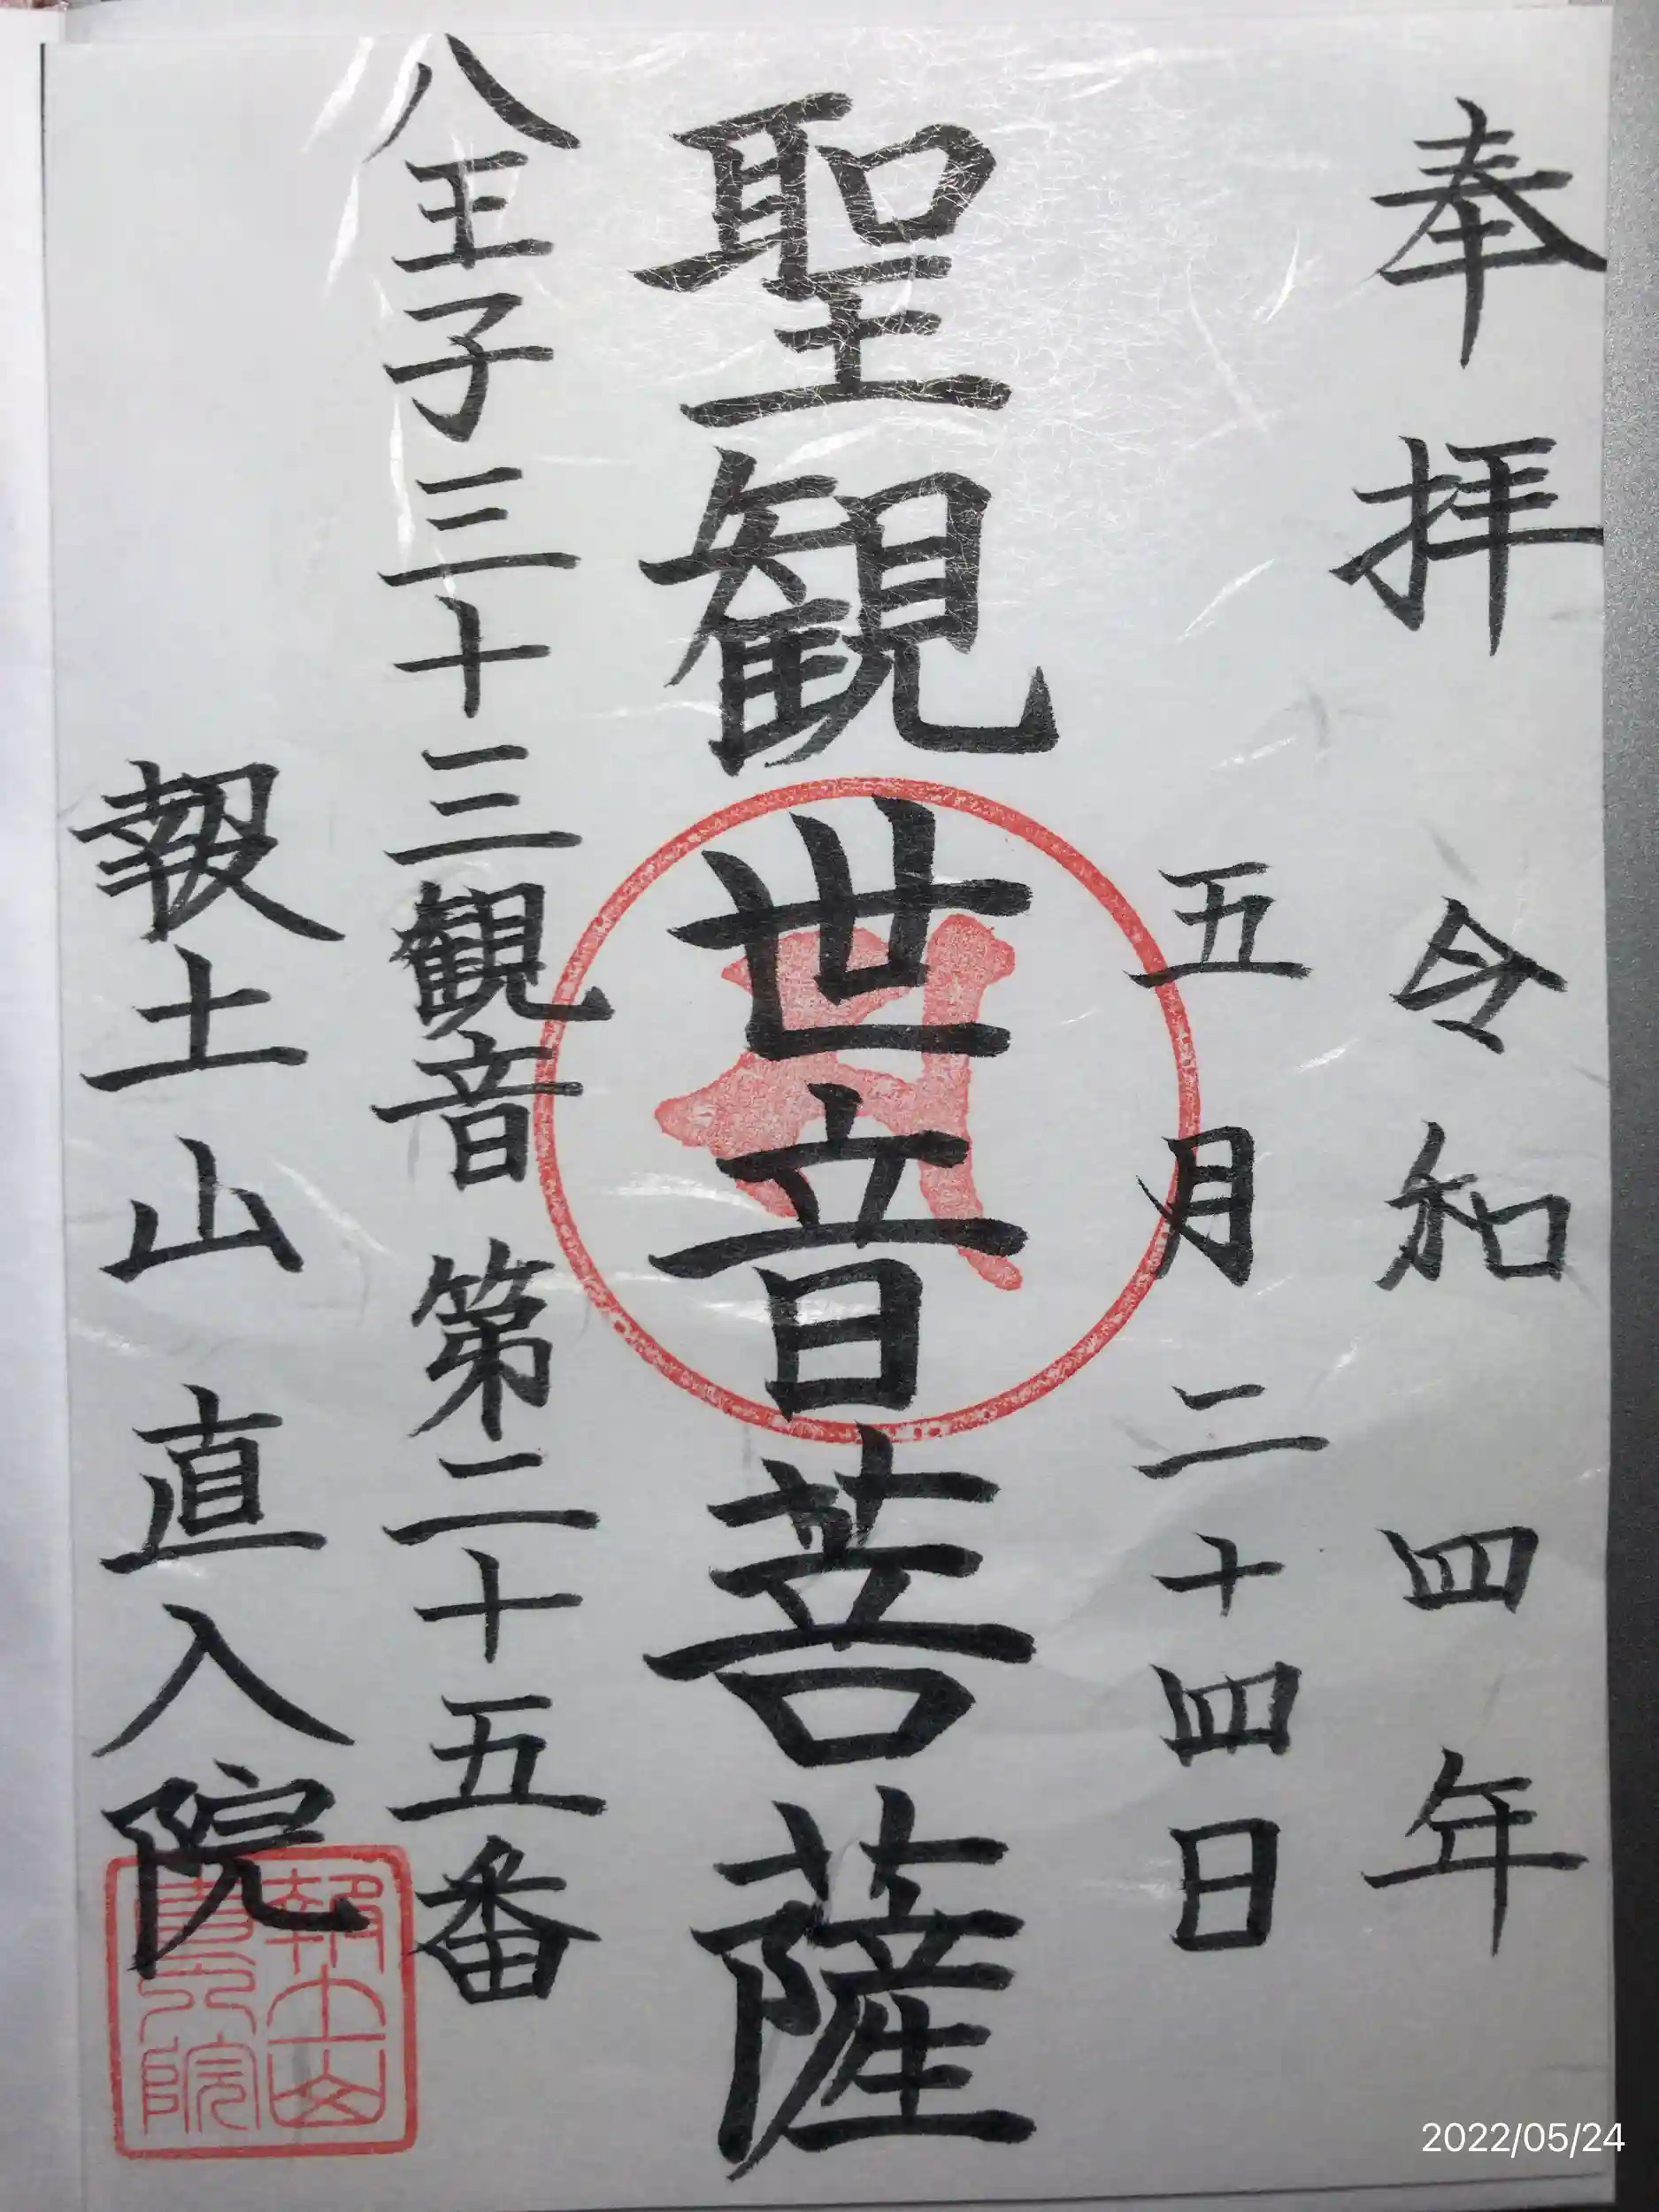 奉拝 令和四年
五月二十四日
聖観世音菩薩
八王子三十三観音 第二十五番
報土山 直入院
報土山
直入院
2022/05/24